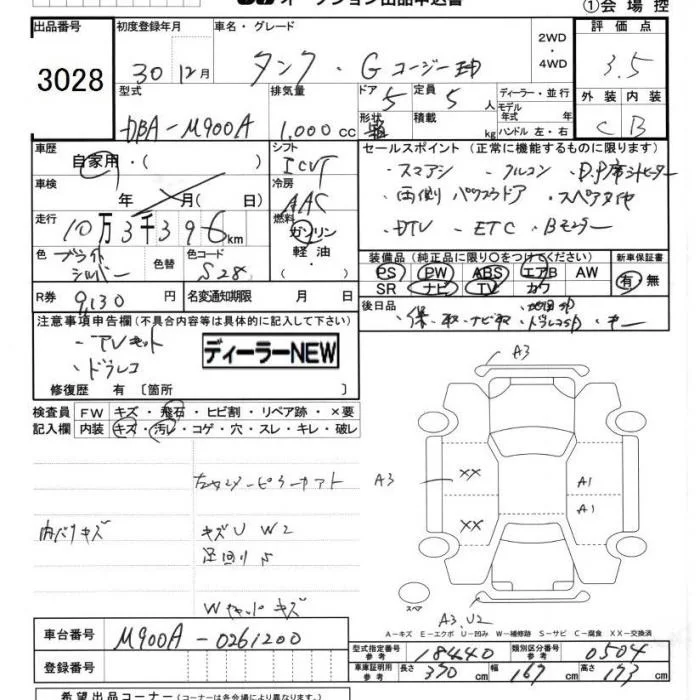 ①会場控
出品番号 初度登録年月 車名・グレード 評価点
3028
30 12月 タンク・G コージーED 2WD・4WD 3.5
型式 排気量 ドア 定員 ディーラー・並行 外装 内装
DBA-M900A 1,000cc 5 5人 モデル年式 年 C B
形状 積載 kg ハンドル 左・右
車歴 シフト セールスポイント (正常に機能するものに限ります)
自家用・( ) ICVT ・スマアシ ・フルコン ・D,P席シートヒーター
車検 年 月( 日) 冷房 AAC ・両側パワスラドア ・スペアタイヤ
走行 10万3千396km 燃料 ガソリン ・DTV ・ETC ・Bモニター
軽油・
色 ブライトシルバー 色替 色コード S28
装備品 (純正品に限り○をつけてください) 新車保証書
PS PW ABS エアB AW 有・無
SR ナビ TV カワ
R券 9,130円 名変通知期限 月 日
後日品
・保・取・ナビ取 ・キー
注意事項申告欄(不具合内容等は具体的に記入して下さい)
・AVキット
・ドラレコ
ディーラーNEW
修復歴 有 〔箇所 〕
検査員記入欄 FW キズ・飛石・ヒビ割・リペア跡・×要
内装 キズ・汚レ・コゲ・穴・スレ・キレ・破レ
A3
A3 XX A1
A1
XX
内バリキズ キズU W2
スペア
A3,U2
A-キズ E-エクボ U-凹み W-補修跡 S-サビ C-腐食 XX-交換済
車台番号 M900A-0261200
型式指定番号 参考 18440 類別区分番号 参考 0504
登録番号 車庫証明用 参考 長さ 370cm 幅 167cm 高さ 173cm
希望出品コーナー (コーナーは各会場により異なります。)